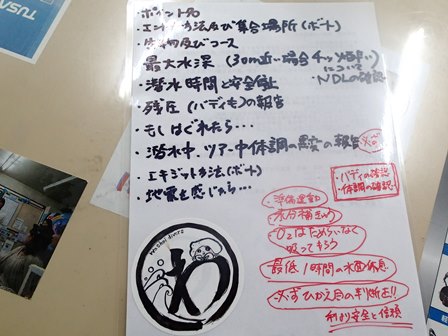 ・ポイント名
・エントリー方法及び集合場所(ボート)
・生物及びコース
・最大水深(30m近い場合チッソ酔い)
について
・NDLの確認
・潜水時間と安全停止
・残圧(バディも)の報告
・もしはぐれたら…
・潜水中、ツアー中体調の異変の報告
・エキジット方法(ボート)
・地震を感じたら…
・バディの確認
・体調の確認
・準備運動
・水分補給
・O2はためらいなく
吸ってもらう
・最低1時間の水面休息
・必ずひかえ目の判断を!!
利より安全と信頼
和
TUSA